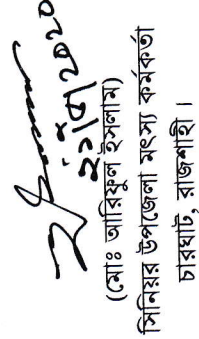 ২১/৭/২০২০
(মোঃ আরিফুল ইসলাম)
সিনিয়র উপজেলা মৎস্য কর্মকর্তা
চারঘাট, রাজশাহী।